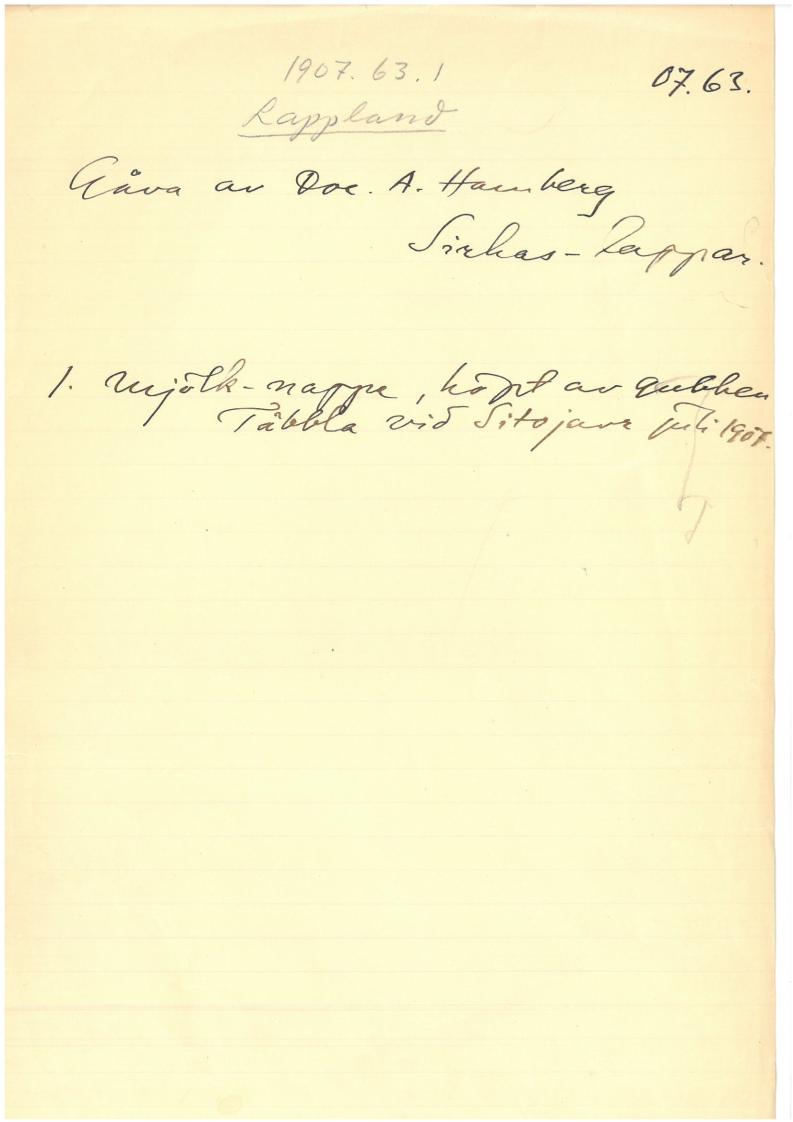 1907.63.1
07.63.
Lappland
Gåva av Doc. A. Hamberg
Sirkas-Lappar.
1. Mjölk-nappe, köpt av gubben
Täbbla vid Sitojaure juli 1907.